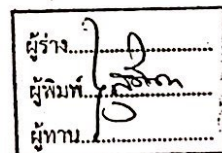 ผู้ร่าง
ผู้พิมพ์
ผู้ทาน